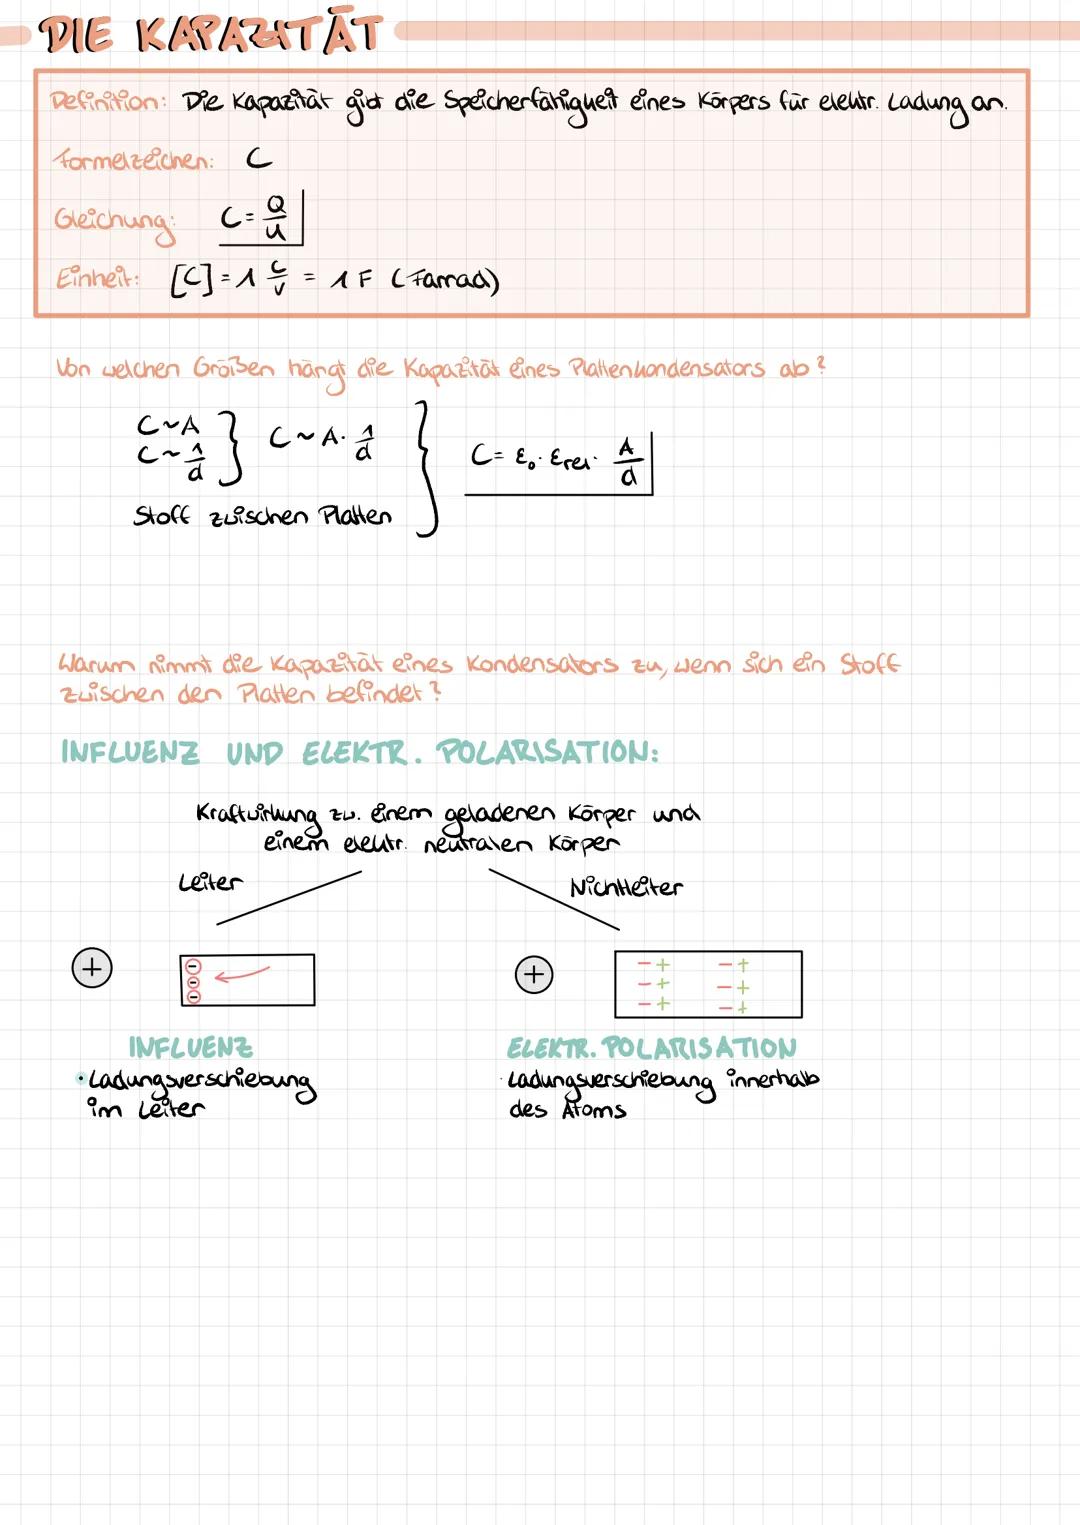 DIE KAPAZITÄT
Definition: Die Kapazität gibt die Speicherfähigkeit eines Körpers für elektr. Ladung an.
Formelzeichen: C
Gleichung: C = Q/U
Einheit: [C] = 1 C/V = 1 F (Farrad)
Von welchen Größen hängt die Kapazität eines Plattenkondensators ab?
C ~ A
C ~ 1/d
C ~ A · 1/d
C = ε₀ · εrel · A/d
Stoff zwischen Platten
Warum nimmt die Kapazität eines Kondensators zu, wenn sich ein Stoff
zwischen den Platten befindet?
INFLUENZ UND ELEKTR. POLARISATION:
Kraftwirkung zw. einem geladenen Körper und
einem elektr. neutralen Körper
Leiter
Nichtleiter
+
- - -
+
- + - +
- + - +
- + - +
INFLUENZ
• Ladungsverschiebung
im Leiter
ELEKTR. POLARISATION
· Ladungsverschiebung innerhalb
des Atoms